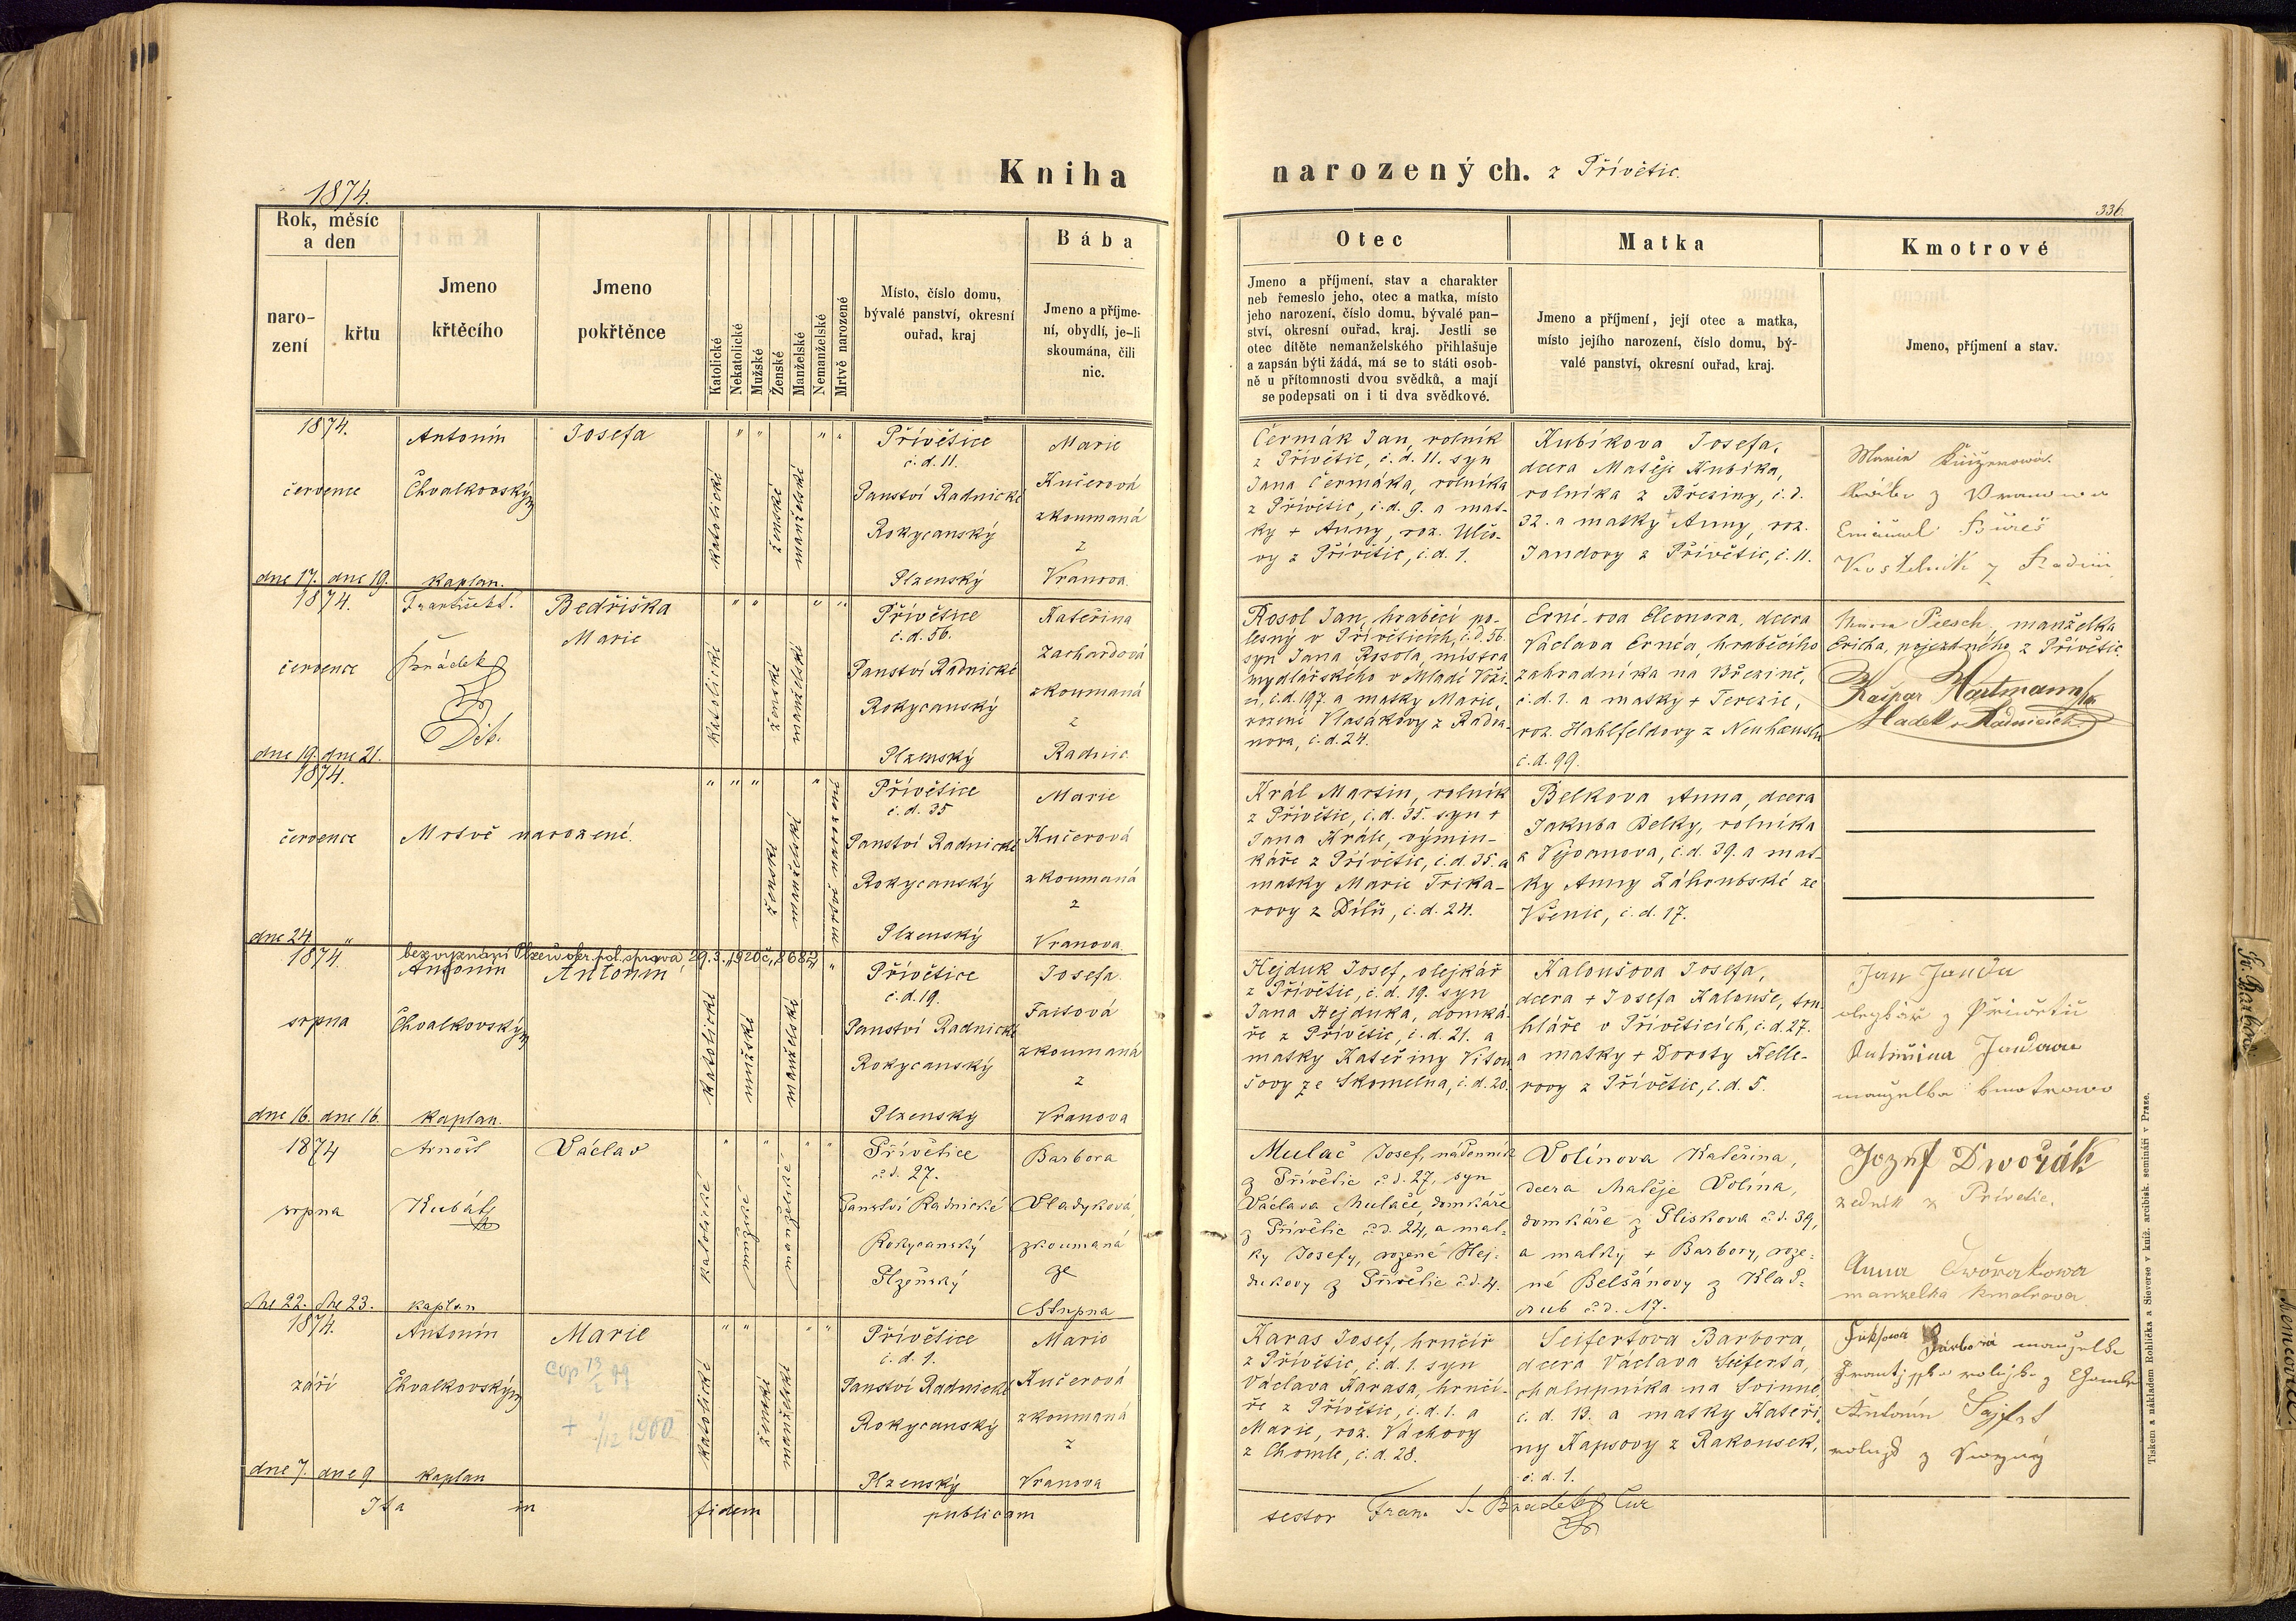 Kniha
narozených. z Přívětic.
1874.
336.
Rok, měsíc
a den
naro-
zení
křtu
Jmeno
křtěcího
Jmeno
pokřtěnce
Katolické
Nekatolické
Mužské
Ženské
Manželské
Nemanželské
Mrtvě narozené
Místo, číslo domu,
bývalé panství, okresní
ouřad, kraj
Bába
Jmeno a příjme-
ní, obydlí, je-li
skoumána, čili
nic.
Otec
Jmeno a příjmení, stav a charakter
neb řemeslo jeho, otec a matka, místo
jeho narození, číslo domu, bývalé pan-
ství, okresní ouřad, kraj. Jestli se
otec dítěte nemanželského přihlašuje
a zapsán býti žádá, má se to státi osob-
ně u přítomnosti dvou svědků, a mají
se podepsati on i ti dva svědkové.
Matka
Jmeno a příjmení, její otec a matka,
místo jejího narození, číslo domu, bý-
valé panství, okresní ouřad, kraj.
Kmotrové
Jmeno, příjmení a stav.
1874.
července
dne 17. dne 19.
Antonín
Chvalkovský
kaplan.
Josefa
katolické
ženské
manželské
Přívětice
č. d. 11.
Panství Radnické
Rokycanský
Plzenský
Marie
Kučerová
zkoumaná
z
Vranova
Čermák Jan, rolník
z Přívětic, č. d. 11. syn
Jana Čermáka, rolníka
z Přívětic, č. d. 9. a mat-
ky + Anny, roz. Ulčo-
vy z Přívětic, č. d. 1.
Kubíkova Josefa,
dcera Matěje Kubíka,
rolníka z Březiny, č. d.
32. a matky + Anny, roz.
Jandovy z Přívětic, č. 11.
Marie
z Vranova
Emanuel Bureš
Kostelník z Radnic
1874.
července
dne 19. dne 21.
František S.
Brádek
Děk.
Bedřiška
Marie
katolické
ženské
manželské
Přívětice
č. d. 56.
Panství Radnické
Rokycanský
Plzenský
Kateřina
Zachardová
zkoumaná
z
Radnic
Rosol Jan, hraběcí po-
lesný v Přívěticích, č. d. 56.
syn Jana Rosola, mistra
mydlářského v Mladé Voži-
ci, č. d. 197. a matky Marie,
rozené Vlasákovy z Radva-
nova, č. d. 24.
Erné-ova Eleonora, dcera
Václava Ernéa, hraběcího
zahradníka na Březině,
č. d. 1. a matky + Terezie,
roz. Hahlfeldovy z Neuhäuseln
č. d. 99.
Marie Piesch, manželka
Ericha, pojezdného z Přívětic.
Kašpar Hartmann
Sládek v Radnicích
1874.
července
dne 24. "
Mrtvě narozené.
ženské
manželské
mrtvě narozené
Přívětice
č. d. 35
Panství Radnické
Rokycanský
Plzenský
Marie
Kučerová
zkoumaná
z
Vranova.
Král Martin, rolník
z Přívětic, č. d. 35. syn +
Jana Krále, výmin-
káře z Přívětic, č. d. 35. a
matky Marie Trika-
rovy z Dílů, č. d. 24.
Belkova Anna, dcera
Jakuba Belky, rolníka
z Vejvanova, č. d. 39. a mat-
ky Anny Záhrubské ze
Všenic, č. d. 17.
1874.
srpna
dne 16. dne 16.
bez vyznání Plzeň okr. pol. správa, 29. 3. 1920 č. 8682
Antonín
Chvalkovský
kaplan.
Antonín
katolické
mužské
manželské
Přívětice
č. d. 19.
Panství Radnické
Rokycanský
Plzensky
Josefa
Faitová
zkoumaná
z
Vranova
Hejduk Josef, olejkář
z Přívětic, č. d. 19. syn
Jana Hejduka, domká-
ře z Přívětic, č. d. 21. a
matky Kateřiny Vitou-
šovy ze Skomelna, č. d. 20.
Kaloušova Josefa,
dcera + Josefa Kalouše, tru-
hláře v Přívěticích, č. d. 27.
a matky + Doroty Kelle-
rovy z Přívětic, č. d. 5.
Jan Janda
olejkář z Přívětic
Kateřina Jandova
manželka kmotrova
1874
srpna
dne 22. dne 23.
Arnošt
Kubát
kaplan
Václav
katolické
mužské
manželské
Přívětice
č. d. 27.
Panství Radnické
Rokycanský
Plzeňský
Barbora
Vladyková,
zkoumaná
ze
Stupna
Mulač Josef, nádenník
z Přívětic č. d. 27, syn
Václava Mulače, domkáře
z Přívětic č. d. 24, a mat-
ky Josefy, rozené Hej-
dukovy z Přívětic č. d. 4.
Volínova Kateřina,
dcera Matěje Volína,
domkáře z Plískova č. d. 39,
a matky + Barbory, roze-
né Belšánovy z Klad-
rub č. d. 17.
Jozef Dwořák
zedník z Privetic.
Anna Dwořakowa
manzelka kmotrova
1874.
září
dne 7. dne 9.
Antonín
Chvalkovský
kaplan
Marie
cop 13/2 99
+ 1/12 1960
katolické
ženské
manželské
Přívětice
č. d. 1.
Panství Radnické
Rokycanský
Plzenský
Marie
Kučerová
zkoumaná
z
Vranova
Karas Josef, hrnčíř
z Přívětic, č. d. 1. syn
Václava Karasa, hrnčí-
ře z Přívětic, č. d. 1. a
Marie, roz. Váchovy
z Chomle, č. d. 28.
Seifertova Barbora,
dcera Václava Seiferta,
chalupníka na Svinné,
č. d. 13. a matky Kateři-
ny Kapsovy z Rakousek,
č. d. 1.
Fuksowá Barbora manželka
Frantiska rolnjka z Chomle
Antonín Sajfrt
rolnjk z Swinny
Ita in fidem publicam
testor Fran. S. Bradek Cur
Tiskem a nákladem Rohlíčka a Sieverse v kníž. arcibisk. semináři v Praze.
Sv. Barbora
Němčovice.